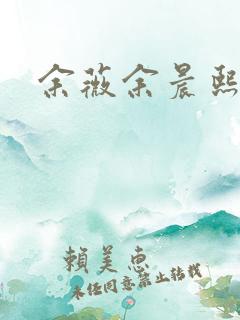 余薇余晨熙
賴美惠
未经同意禁止转载